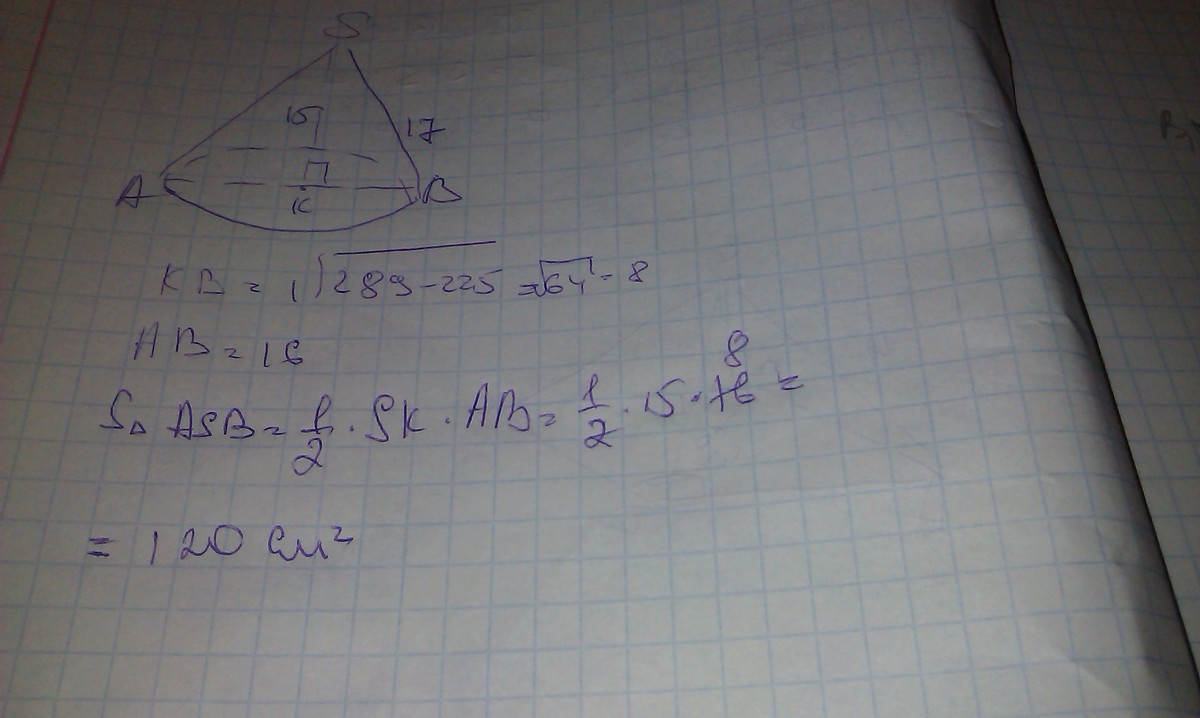 S
15
17
A
K
B
KB = √289-225 = √64 = 8
AB = 16
S△ ASB = 1/2 · SK · AB = 1/2 · 15 · 16 8 =
= 120 см²